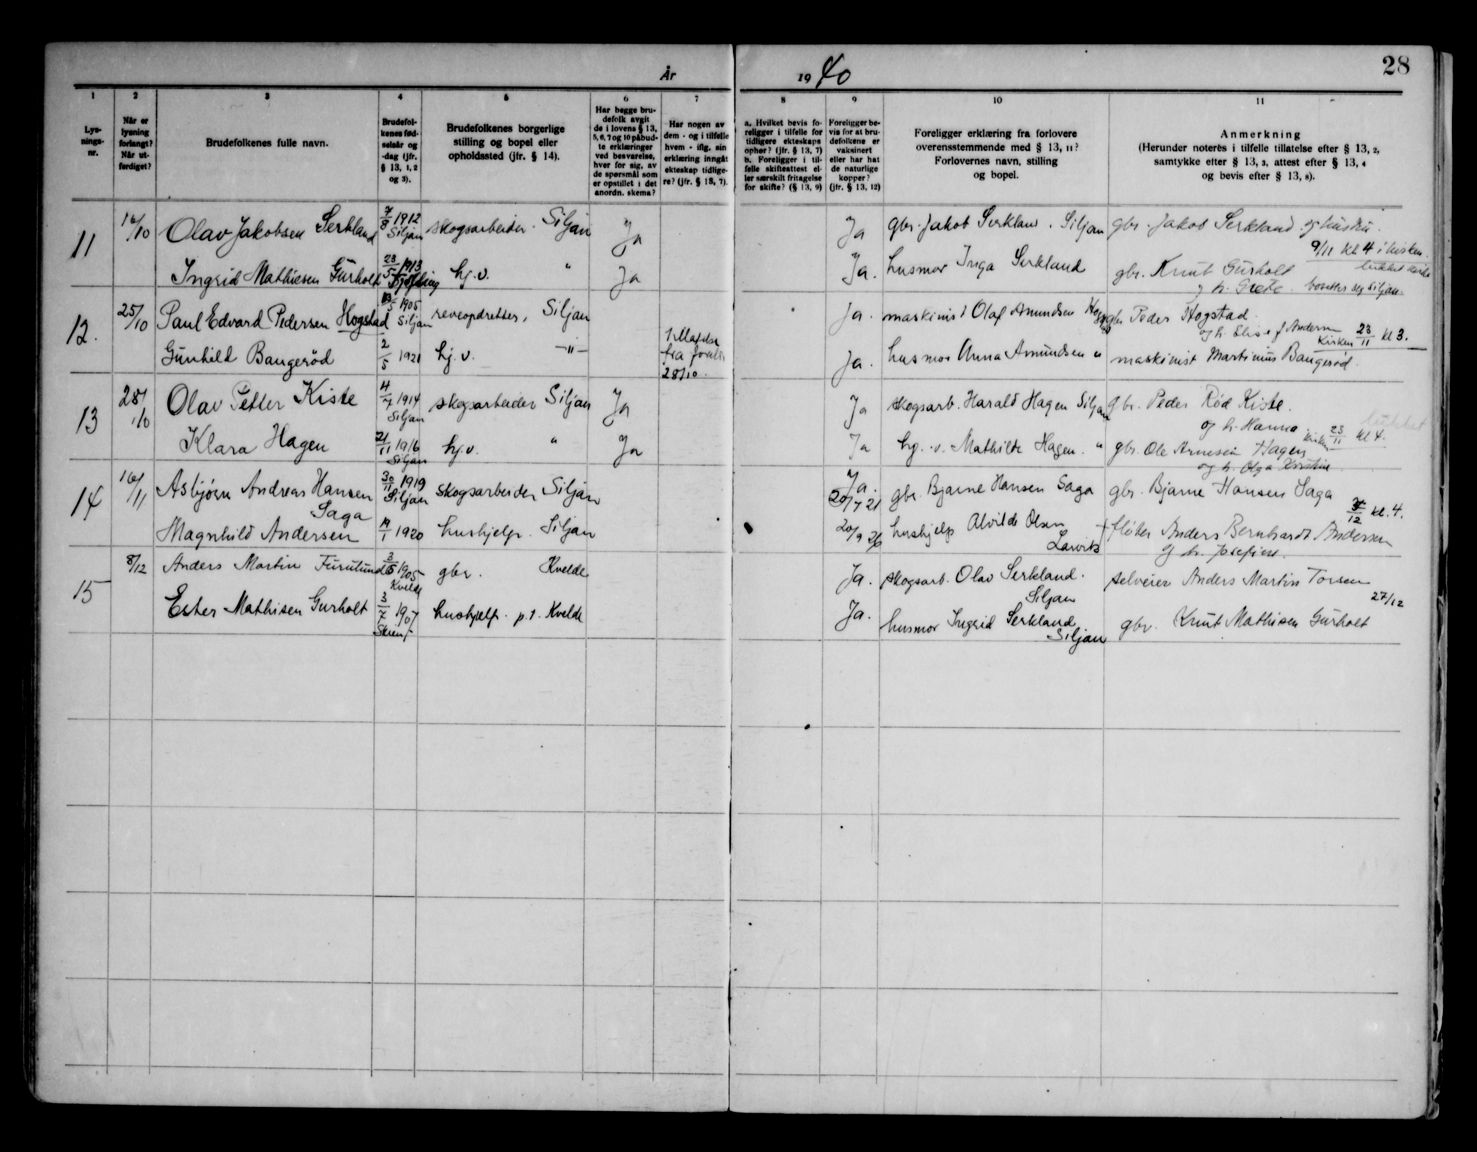 År 1940
28
1 2 3 4 5 6 7 8 9 10 11
Lysningsnr.
Når er lysning forlangt? Når utferdiget?
Brudefolkenes fulle navn.
Brudefolkenes fødselsår og -dag (jfr. § 13, 1, 2 og 3).
Brudefolkenes borgerlige stilling og bopel eller opholdssted (jfr. § 14).
Har begge brudefolk avgit de i lovens § 13, 5, 6, 7 og 10 påbudte erklæringer ved besvarelse, hver for sig, av de spørsmål som er opstillet i det anordn. skema?
Har nogen av dem - og i tilfelle hvem - iflg. sin erklæring inngått ekteskap tidligere? (jfr. § 13, 7).
a. Hvilket bevis foreligger i tilfelle for tidligere ekteskaps ophør? (jfr. § 13, 7)
b. Foreligger i tilfelle skifteattest eller særskilt fritagelse for skifte? (§ 13, 9)
Foreligger bevis for at brudefolkene er vaksinert eller har hat de naturlige kopper? (jfr. § 13, 12)
Foreligger erklæring fra forlovere overensstemmende med § 13, 11? Forlovernes navn, stilling og bopel.
Anmerkning
(Herunder noteres i tilfelle tillatelse efter § 13, 2, samtykke efter § 13, 3, attest efter § 13, 4 og bevis efter § 13, 8).
11 16/10 Olav Jakobsen Serkland 7/8 1912 Siljan skogsarbeider Siljan Ja Ja gbr. Jakob Serkland . Siljan gbr. Jakob Serkland og hustru
9/11 kl 4 i kirken
Ingrid Mathisen Gurholt 23/5 1913 hj.v. " Ja Ja. husmor Inga Serkland gbr. Knut Gurholt
og h. Grete. bosetter seg Siljan.
12. 25/10 Paul Edvard Pedersen Hogstad 1905 Siljan reveopdretter, Siljan Ja. maskinist Olaf Amundsen gbr Peder Hogstad
og h. Elise f. Andersen
Kirken 23/11 kl 3.
Gunhild Baugerød 2/5 1921 hj.v. -"- fra 28/10. Ja. husmor Anna Amundsen " maskinist Martinius Baugerød
13 28/10 Olav Petter Kiste 4/7 1914 Siljan skogsarbeider Siljan Ja Ja skogsarb. Harald Hagen Siljan gbr. Peder Rød Kiste.
og h. Hanna
kirken 23/11 kl 4.
Klara Hagen 21/11 1916 Siljan hj.v. " Ja Ja hj.v. Mathilde Hagen. " gbr. Ole Arnesen Hagen
og h. Olga Kristine
14 16/11 Asbjørn Andreas Hansen Saga 30/11 1919 Siljan skogsarbeider Siljan Ja. 20/7 21 gbr Bjarne Hansen Saga gbr. Bjarne Hansen Saga
/12 kl. 4.
Magnhild Andersen 19/1 1920 hushjelp. Siljan 20/9 26 hushjelp Alvilde Olsen Larvik fløter Anders Bernhardt Andersen
og h. Josefine.
15 8/12 Anders Martin Furulund 1905 Kvelde gbr. Kvelde Ja. skogsarb. Olav Serkland. Siljan selveier Anders Martin Torsen
27/12
Ester Mathisen Gurholt 3/7 1907 hushjelp. p.t. Kvelde Ja. husmor Ingrid Serkland Siljan gbr. Knut Mathisen Gurholt